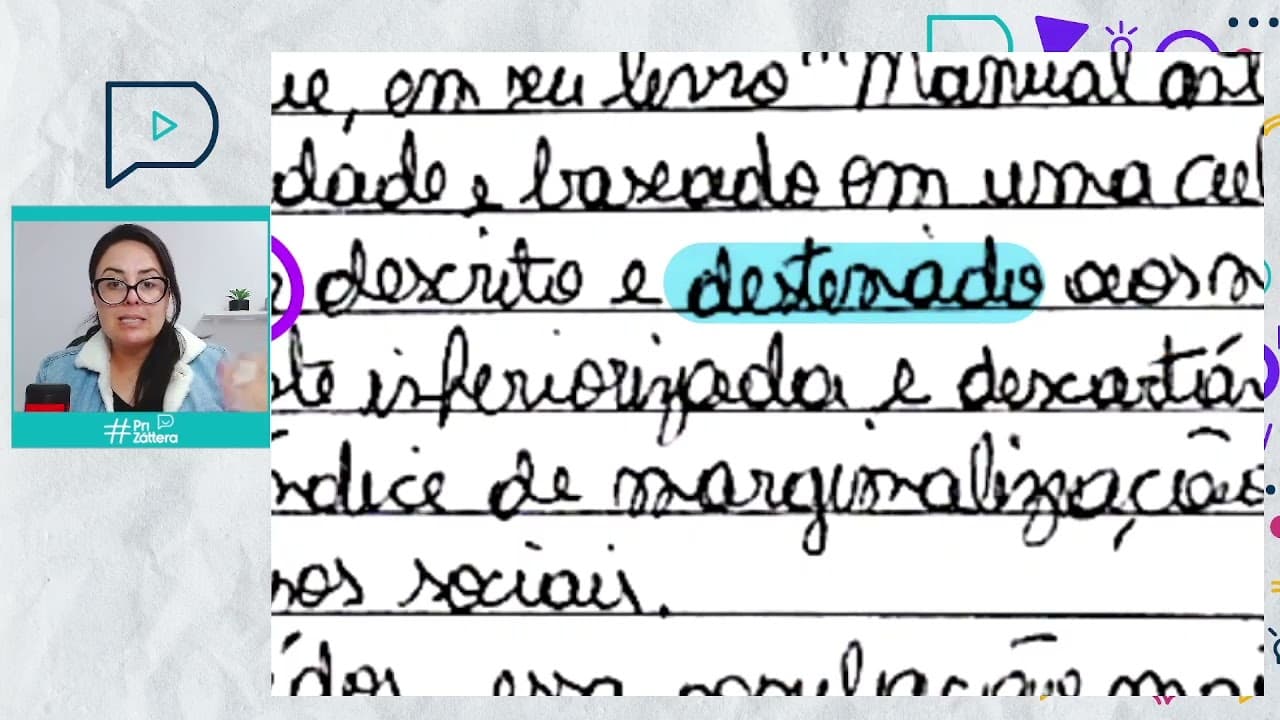 ue, em seu livro "Manual ant
dade e baseado em uma cul
descrito e destinado aos n
te inferiorizada e descartáv
ndice de marginalização
nos sociais.
essa população mai
#Pri
Záttera